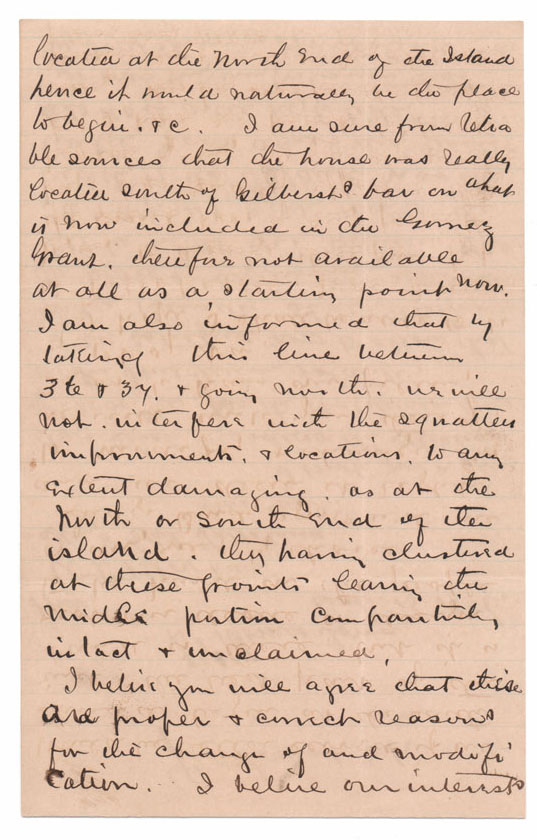 located at the North End of the Island
hence it would naturally be the place
to begin. &c. I am sure from relia
ble sources that the house was really
located south of Gilberts bar on what
is now included in the Gomez
Grant. therefore not available
at all as a starting point now.
I am also informed that by
taking this line between
36 & 37. & going north. we will
not. interfere with the squatters
improvements. & locations. to any
Extent damaging. as at the
North or South End of the
island. they having clustered
at these points leaving the
middle portion comparitively
intact & unclaimed.
I belive you will agree that these
are proper & correct reasons
for the change of and modifi
cation. I belive our interests